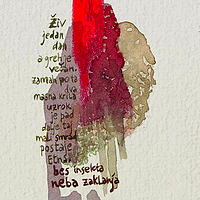 živ
jedan
dan
a greh je
večan.
zaman po ta
dva
masna krila
uzrok
je pad
dalje taj
mali smrad
postaje
Etna
bes insekta
neba zaklanja